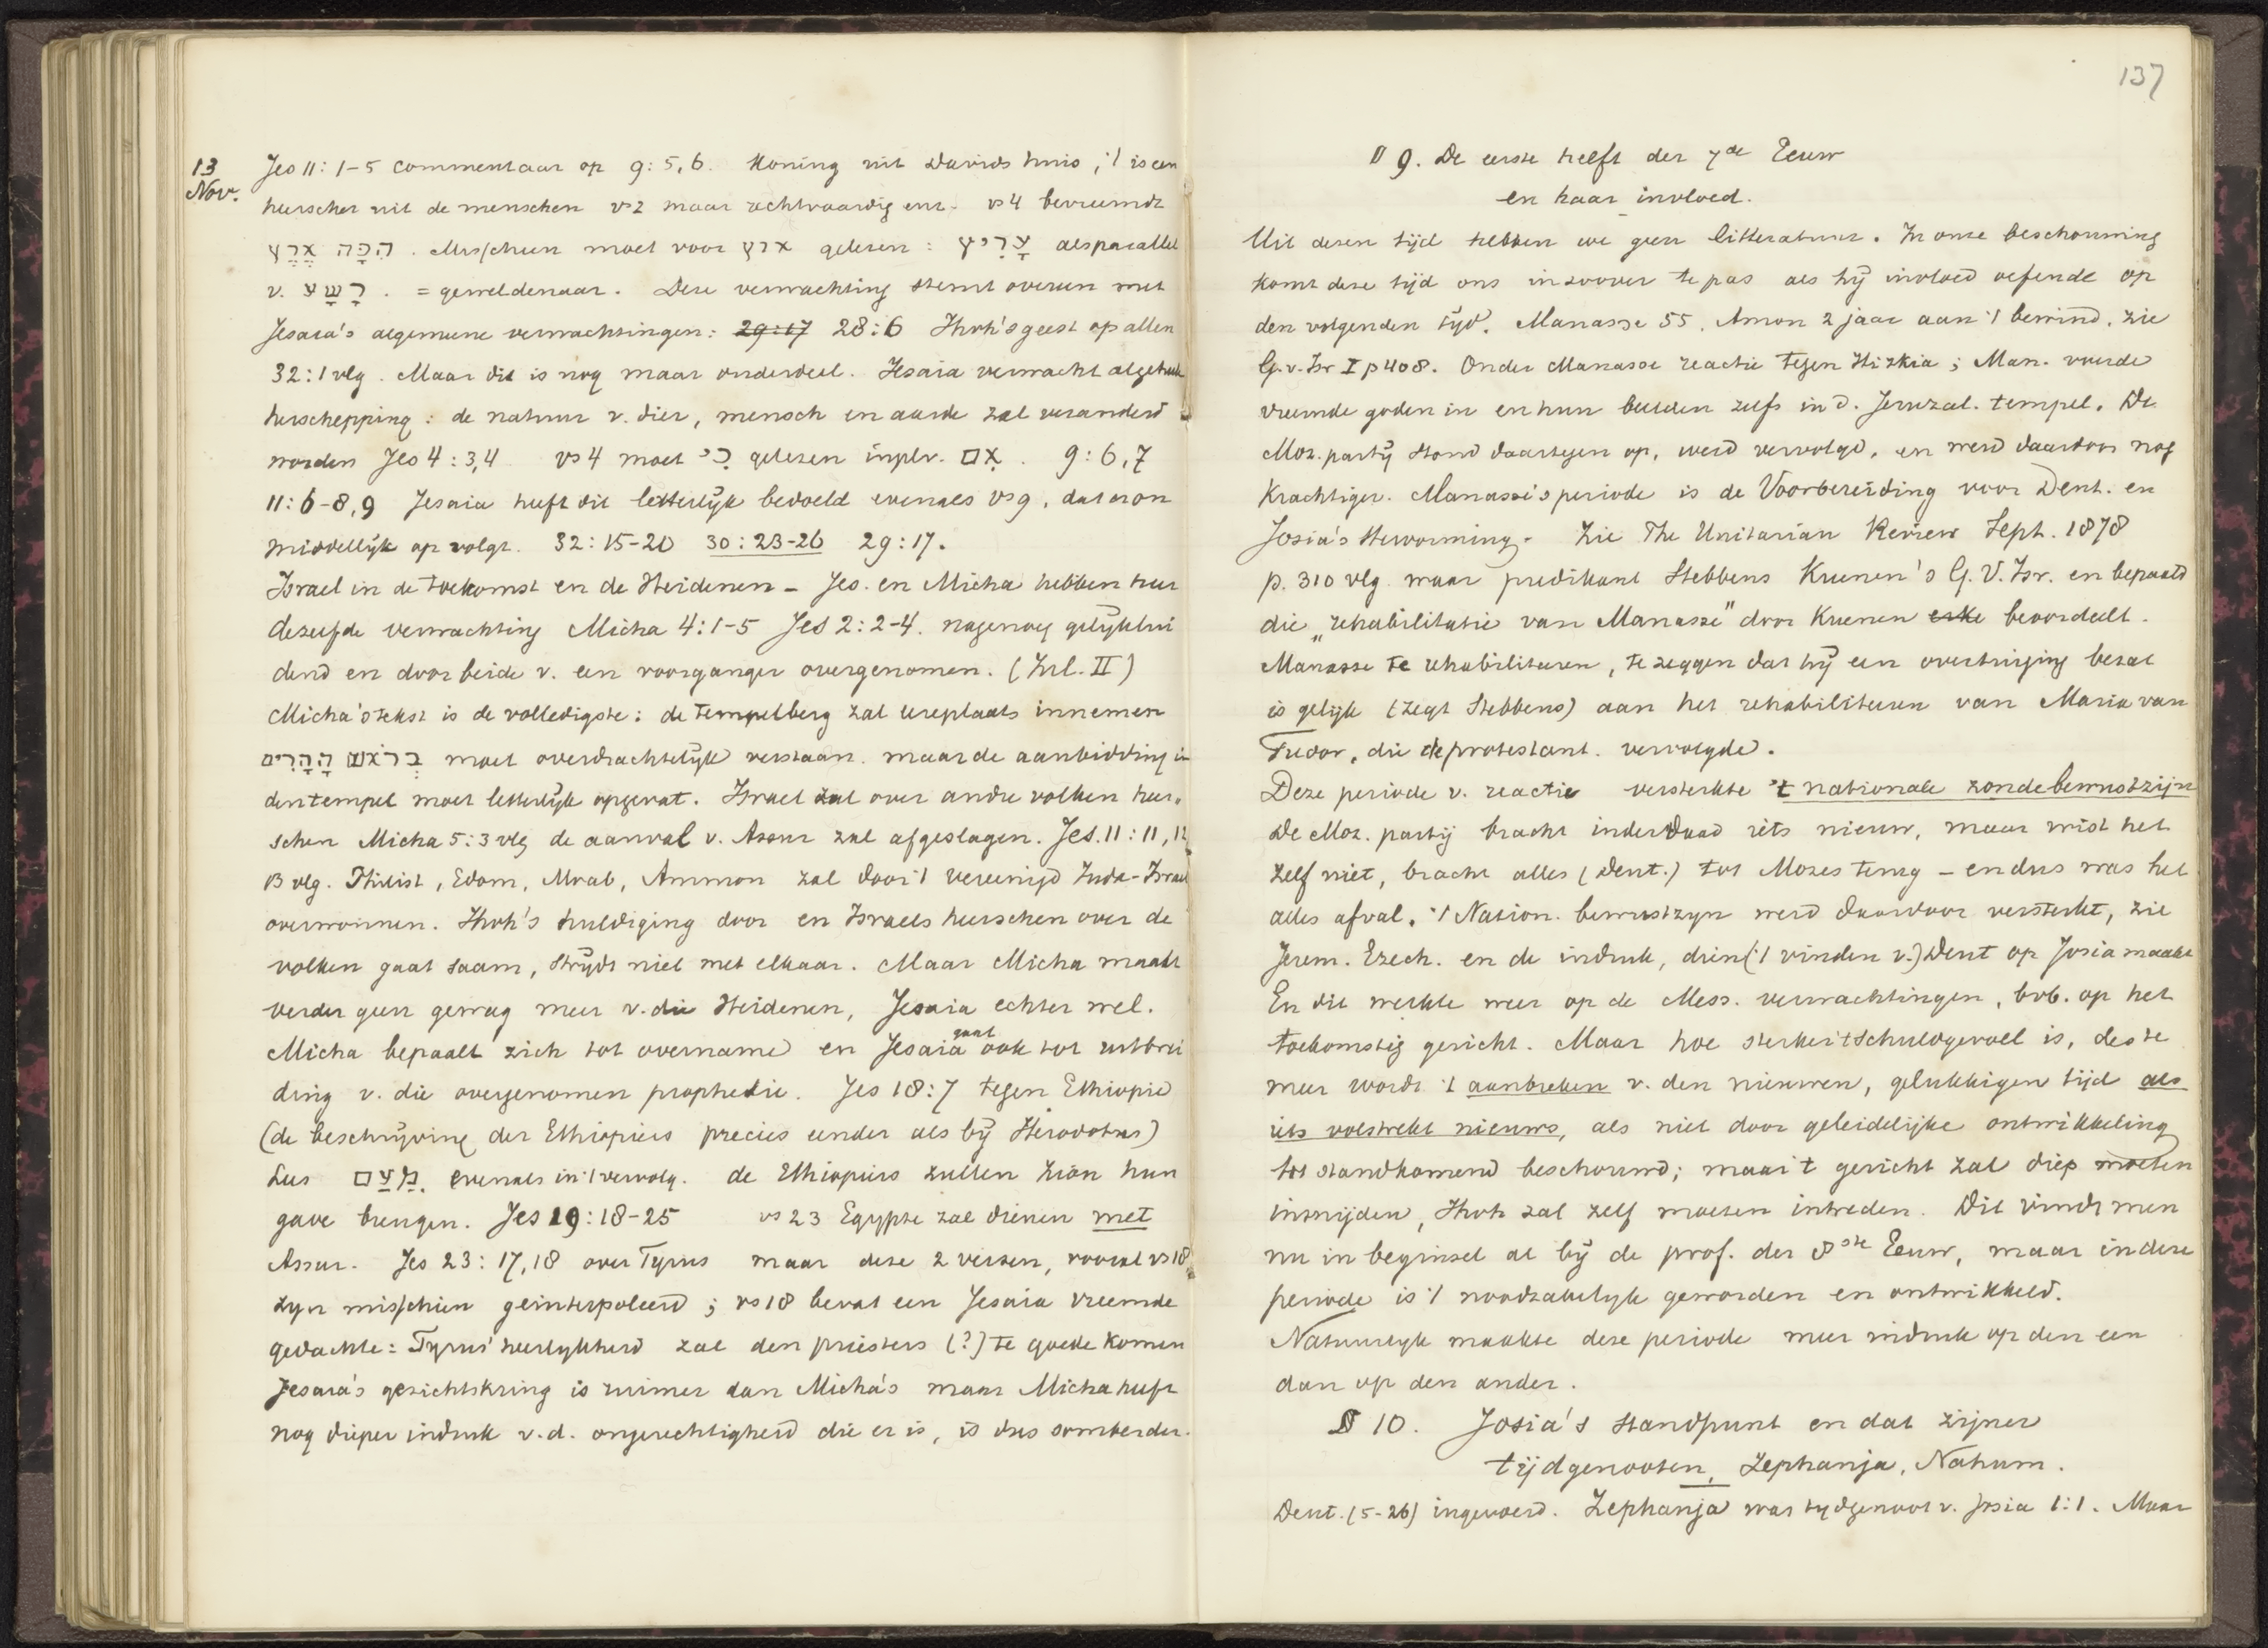 13 Nov. Jes 11: 1-5 commentaar op 9: 5, 6. Koning uit Davids huis, 't is een
heerscher uit de menschen vs 2 maar rechtvaardig enz. vs 4 bevreemdt
הִכָּה אֶרֶץ . Misschien moet voor ארץ gelezen : עָרִיץ als parallel
v. רָשָׁע . = geweldenaar. Deze verwachting stemt overeen met
Jesaia's algemeene verwachtingen: 29:17 28:6 Jhvh's geest op allen
32:1 vlg. Maar dit is nog maar onderdeel. Jesaia verwacht algeheele
herschepping : de natuur v. dier, mensch en aarde zal veranderd
worden Jes 4 : 3,4 vs 4 moet כִּי gelezen inplv. אִם . 9 : 6,7
11: 6-8, 9 Jesaia heeft dit letterlijk bedoeld evenals vs 9, dat er on
middellijk op volgt. 32: 15-20 30 : 23-26 29 : 17.
Israel in de toekomst en de Heidenen - Jes. en Micha hebben hier
dezelfde verwachting Micha 4: 1-5 Jes 2: 2-4. nagenoeg gelijklui
dend en door beide v. een voorganger overgenomen. (Inl. II)
Micha's tekst is de volledigste: de tempelberg zal eereplaats innemen
בְּרֹאשׁ הֶהָרִים moet overdrachtelijk verstaan. maar de aanbidding in
den tempel moet letterlijk opgevat. Israel zal over andre volken heer-
schen Micha 5: 3 vlg de aanval v. Assur zal afgeslagen. Jes. 11 : 11, 12
13 vlg. Philist, Edom, Moab, Ammon zal door 't vereenigd Juda-Israel
overwonnen. Jhvh's huldiging door en Israels heerschen over de
volken gaat saam, strijdt niet met elkaar. Maar Micha maakt
verder geen gewag meer v. die Heidenen, Jesaia echter wel.
Micha bepaalt zich tot overname en Jesaia gaat ook tot uitbrei
ding v. die overgenomen prophetie. Jes 18 : 7 tegen Ethiopië
(de beschrijving der Ethiopiers precies eender als bij Herodotus)
Lees מֵעַם evenals in 't vervolg. de Ethiopiers zullen Zion hun
gave brengen. Jes 19 : 18-25 vs 23 Egypte zal dienen met
Assur. Jes 23 : 17, 18 over Tyrus maar deze 2 verzen, vooral vs 18,
zyn misschien geinterpoleerd ; vs 18 bevat een Jesaia vreemde
gedachte : Tyrus' heerlykheid zal den priesters (?) te goede komen
Jesaia's gezichtskring is ruimer dan Micha's maar Micha heeft
nog dieper indruk v. d. ongerechtigheid die er is, is dus somberder.
137
§ 9. De eerste helft der 7de Eeuw
en haar invloed.
Uit dezen tijd hebben we geen litteratuur. In onze beschouwing
komt deze tijd ons in zoover te pas als hij invloed oefende op
den volgenden tyd. Manasse 55, Amon 2 jaar aan 't bewind. zie
G. v. Isr I p 408. Onder Manasse reactie tegen Hizkia ; Man. voerde
vreemde goden in en hun beelden zelfs in d. Jeruzal. tempel. De
Moz. partij stond daartegen op, werd vervolgd, en werd daardoor nog
krachtiger. Manasse's periode is de Voorbereiding voor Deut. en
Josia's Hervorming. Zie The Unitarian Review Sept. 1878
p. 310 vlg waar predikant Stebbens Kuenen's G. V. Isr. en bepaald
die „rehabilitatie van Manasse" door Kuenen beoordeelt.
Manasse te rehabiliteren, te zeggen dat hij een overtuiging bezat
is gelijk (zegt Stebbens) aan het rehabiliteren van Maria van
Tudor, die de protestant. vervolgde.
Deze periode v. reactie versterkte 't nationale zondebewustzijn
De Moz. partij bracht inderdaad iets nieuw, maar wist het
zelf niet, bracht alles (Deut.) tot Mozes terug - en dus was het
alles afval. 't Nation. bewustzyn werd daardoor versterkt, zie
Jerem. Ezech. en de indruk, dien ('t vinden v.) Deut op Josia maakte
En dit werkte weer op de Mess. verwachtingen, bvb. op het
toekomstig gericht. Maar hoe sterker 't schuldgevoel is, des te
meer wordt 't aanbreken v. den nieuwen, gelukkigen tijd als
iets volstrekt nieuws, als niet door geleidelijke ontwikkeling
tot standkomend beschouwd; maar 't gericht zal diep moeten
insnijden, Jhvh zal zelf moeten intreden. Dit vindt men
nu in beginsel al bij de prof. der 8ste Eeuw, maar in deze
periode is 't noodzakelyk geworden en ontwikkeld.
Natuurlyk maakte deze periode meer indruk op den een
dan op den ander.
§ 10. Josia's standpunt en dat zijner
tijdgenooten, Zephanja, Nahum.
Deut. (5-26) ingevoerd. Zephanja was tydgenoot v. Josia 1:1. Maar